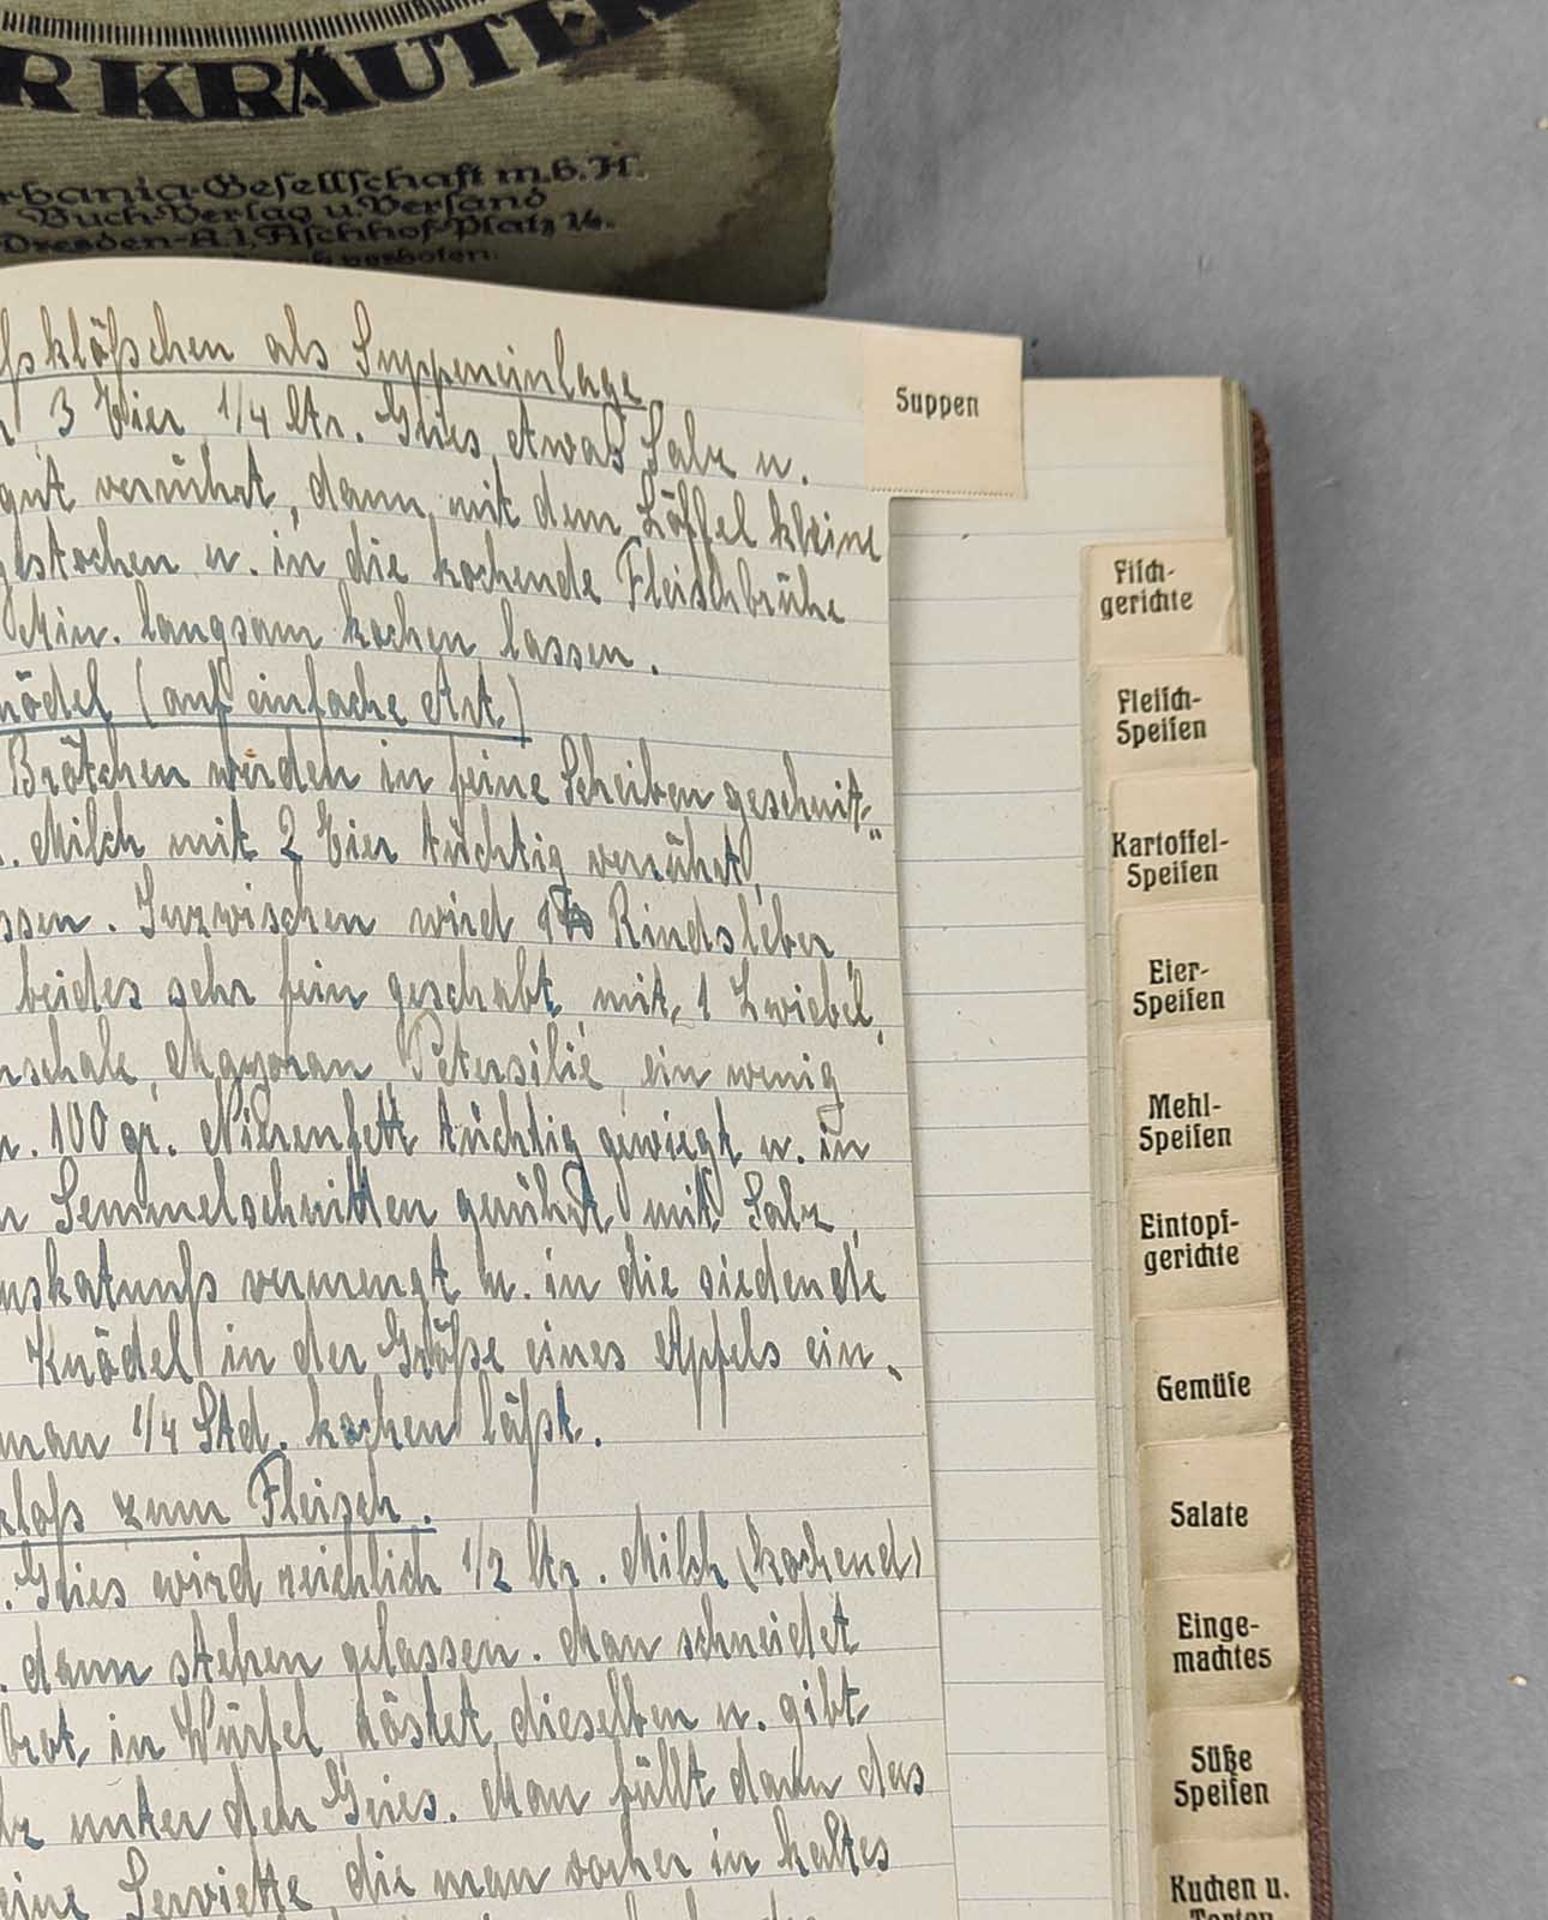 R KRÄUTER
rbania-Geſellſchaft m.b.H.
Buch-Verlag u. Verſand
Dresden-A.1, Aſchhof-Platz 14.
verboten.
ßklößchen als Suppeneinlage
3 Eier 1/4 ltr. Gries, etwas Salz u.
gut verrührt, dann mit dem Löffel kleine
gestochen u. in die kochende Fleischbrühe
Min. langsam kochen lassen.
nödel (auf einfache Art.)
Brötchen werden in feine Scheiben geschnit-
. Milch mit 2 Eier tüchtig verrührt,
ssen. Inzwischen wird 1 ℔ Rindsleber,
beides sehr fein geschabt mit 1 Zwiebel,
nschale, Mayoran, Petersilie, ein wenig
u. 100 gr. Nierenfett tüchtig gewiegt u. in
n Semmelschnitten gerührt, mit Salz,
uskatnuß vermengt u. in die siedende
Knödel in der Größe eines Apfels ein,
man 1/4 Std. kochen läßt.
kloß zum Fleisch.
. Gries wird reichlich 1/2 ltr. Milch (kochend)
. dann stehen gelassen. Man schneidet
brot in Würfel röstet dieselben u. gibt
lz unter den Gries. Man füllt dann das
eine Serviette, die man vorher in kaltes
Suppen
Fiſch-
gerichte
Fleiſch-
Speiſen
Kartoffel-
Speiſen
Eier-
Speiſen
Mehl-
Speiſen
Eintopf-
gerichte
Gemüſe
Salate
Einge-
machtes
Süße
Speiſen
Kuchen u.
Torten